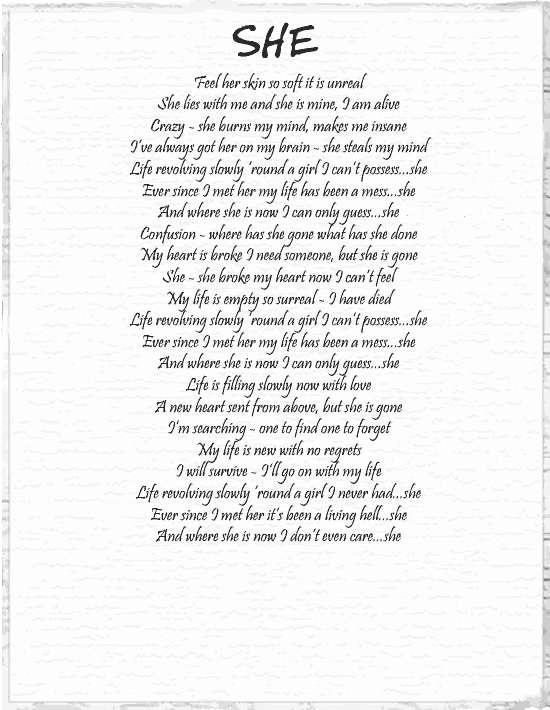 SHE
Feel her skin so soft it is unreal
She lies with me and she is mine, I am alive
Crazy - she burns my mind, makes me insane
I've always got her on my brain - she steals my mind
Life revolving slowly 'round a girl I can't possess...she
Ever since I met her my life has been a mess...she
And where she is now I can only guess...she
Confusion - where has she gone what has she done
My heart is broke I need someone, but she is gone
She - she broke my heart now I can't feel
My life is empty so surreal - I have died
Life revolving slowly 'round a girl I can't possess...she
Ever since I met her my life has been a mess...she
And where she is now I can only guess...she
Life is filling slowly now with love
A new heart sent from above, but she is gone
I'm searching - one to find one to forget
My life is new with no regrets
I will survive - I'll go on with my life
Life revolving slowly 'round a girl I never had...she
Ever since I met her it's been a living hell...she
And where she is now I don't even care...she